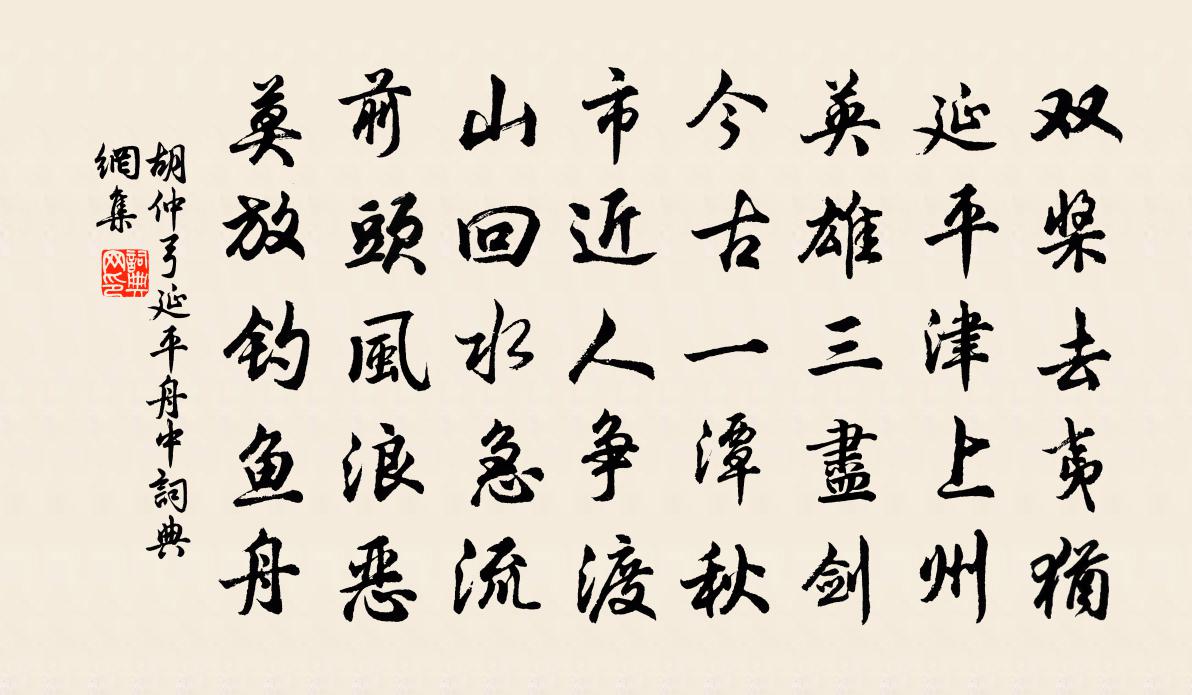 双桨去夷猶
延平津上州
英雄三盡剑
今古一潭秋
市近人争渡
山回水急流
前頭風浪恶
莫放钓鱼舟
胡仲弓延平舟中詞典
網集
詞典
网印